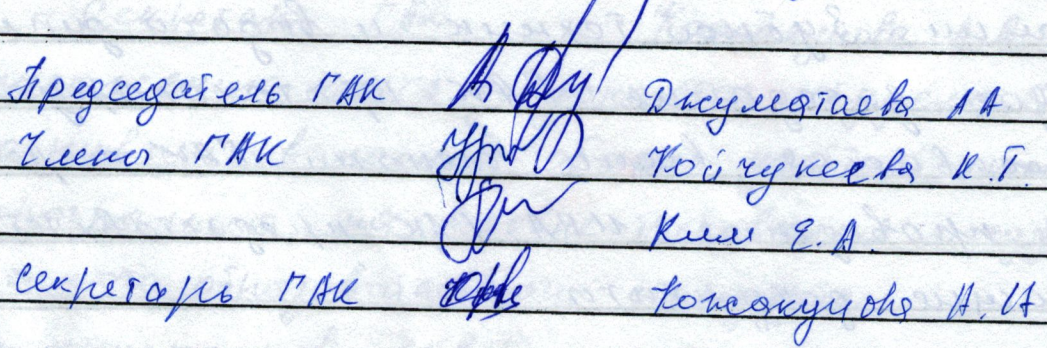 Председатель ГАК Джуматаева А А
Члены ГАК Койчукеева К.Т.
Ким Е.А.
Секретарь ГАК Кожакунова А.И